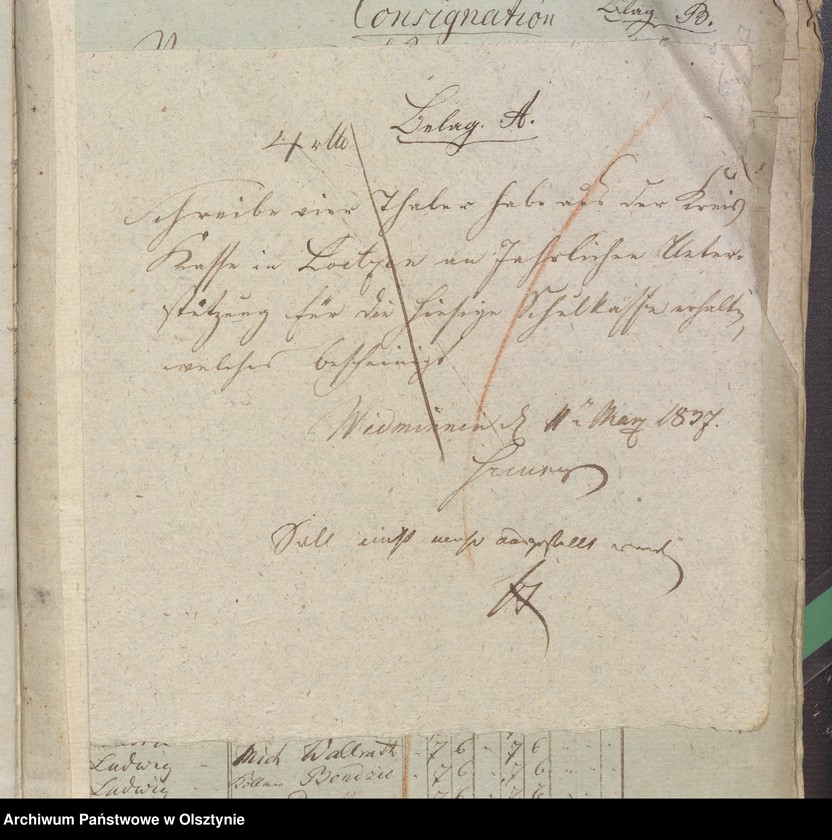 Consignation
Belag B.
Belag. A.
4 rtl
Schreibe vier Thaler habe aus der Kreis
Kasse in Loetzen an Jahrlichen Unter-
stützung für die hiesige Schulkasse erhalten,
welches bescheinigt
Widminnen d 11 Marz 1837.
Soll nicht mehr ausgestellt werd
Ludwig Mich Wallrath 7 6 - 7 6
Ludwig Bondzio 7 6 - 7 6
Archiwum Państwowe w Olsztynie